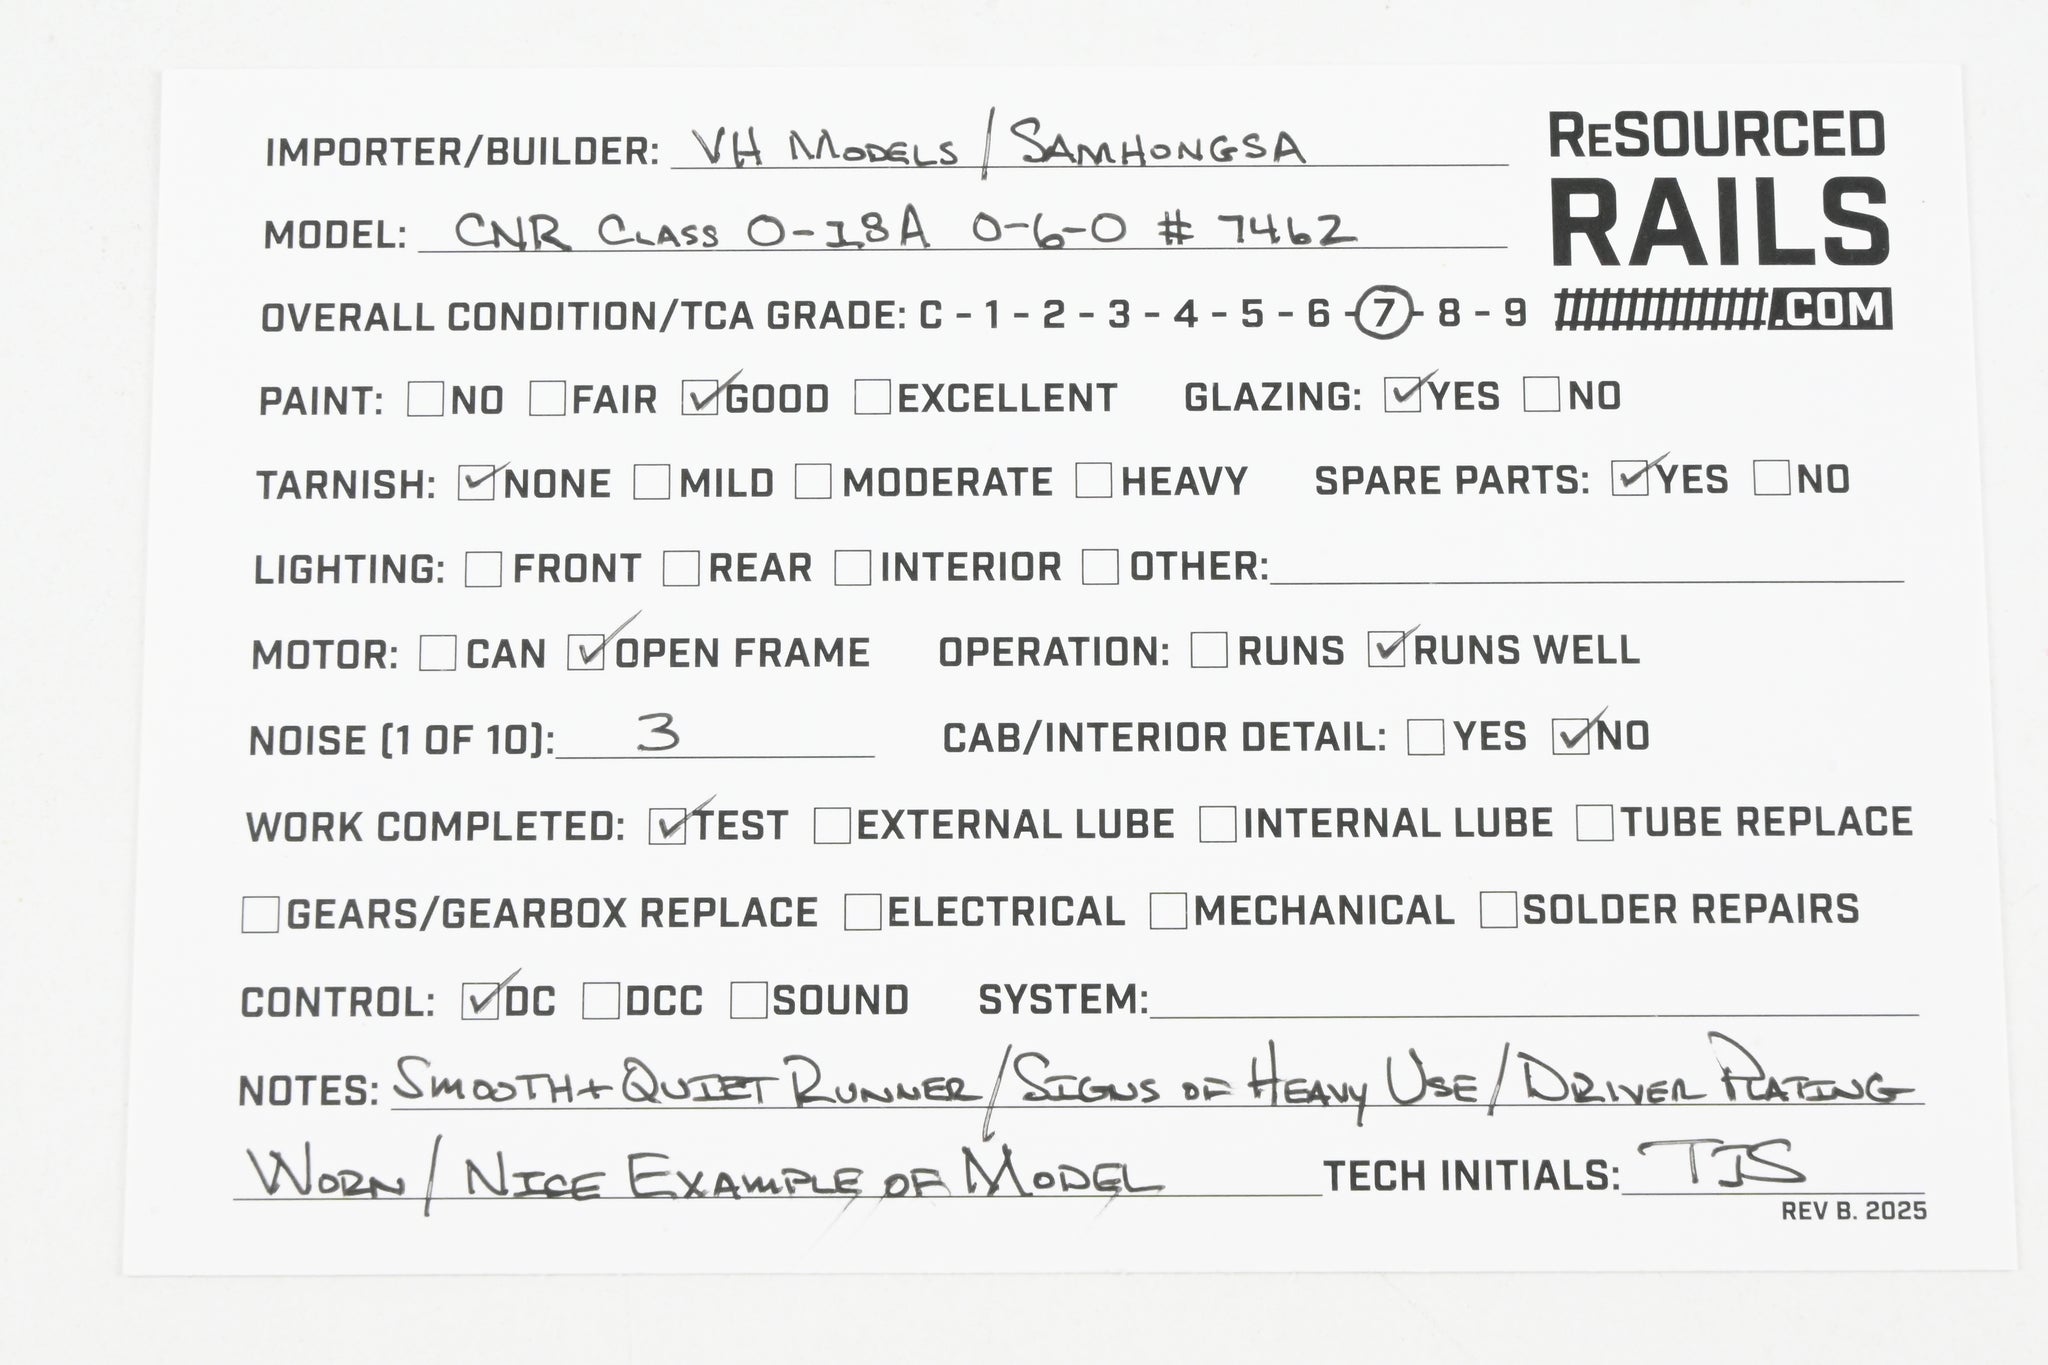 IMPORTER/BUILDER: VH MODELS / SAMHONGSA
ReSOURCED
RAILS
.COM
MODEL: CNR CLASS O-18A 0-6-0 # 7462
OVERALL CONDITION/TCA GRADE: C - 1 - 2 - 3 - 4 - 5 - 6 - 7 - 8 - 9
PAINT: NO FAIR GOOD EXCELLENT GLAZING: YES NO
TARNISH: NONE MILD MODERATE HEAVY SPARE PARTS: YES NO
LIGHTING: FRONT REAR INTERIOR OTHER:
MOTOR: CAN OPEN FRAME OPERATION: RUNS RUNS WELL
NOISE (1 OF 10): 3 CAB/INTERIOR DETAIL: YES NO
WORK COMPLETED: TEST EXTERNAL LUBE INTERNAL LUBE TUBE REPLACE
GEARS/GEARBOX REPLACE ELECTRICAL MECHANICAL SOLDER REPAIRS
CONTROL: DC DCC SOUND SYSTEM:
NOTES: SMOOTH + QUIET RUNNER / SIGNS OF HEAVY USE / DRIVER PLATING
WORN / NICE EXAMPLE OF MODEL TECH INITIALS: TJS
REV B. 2025